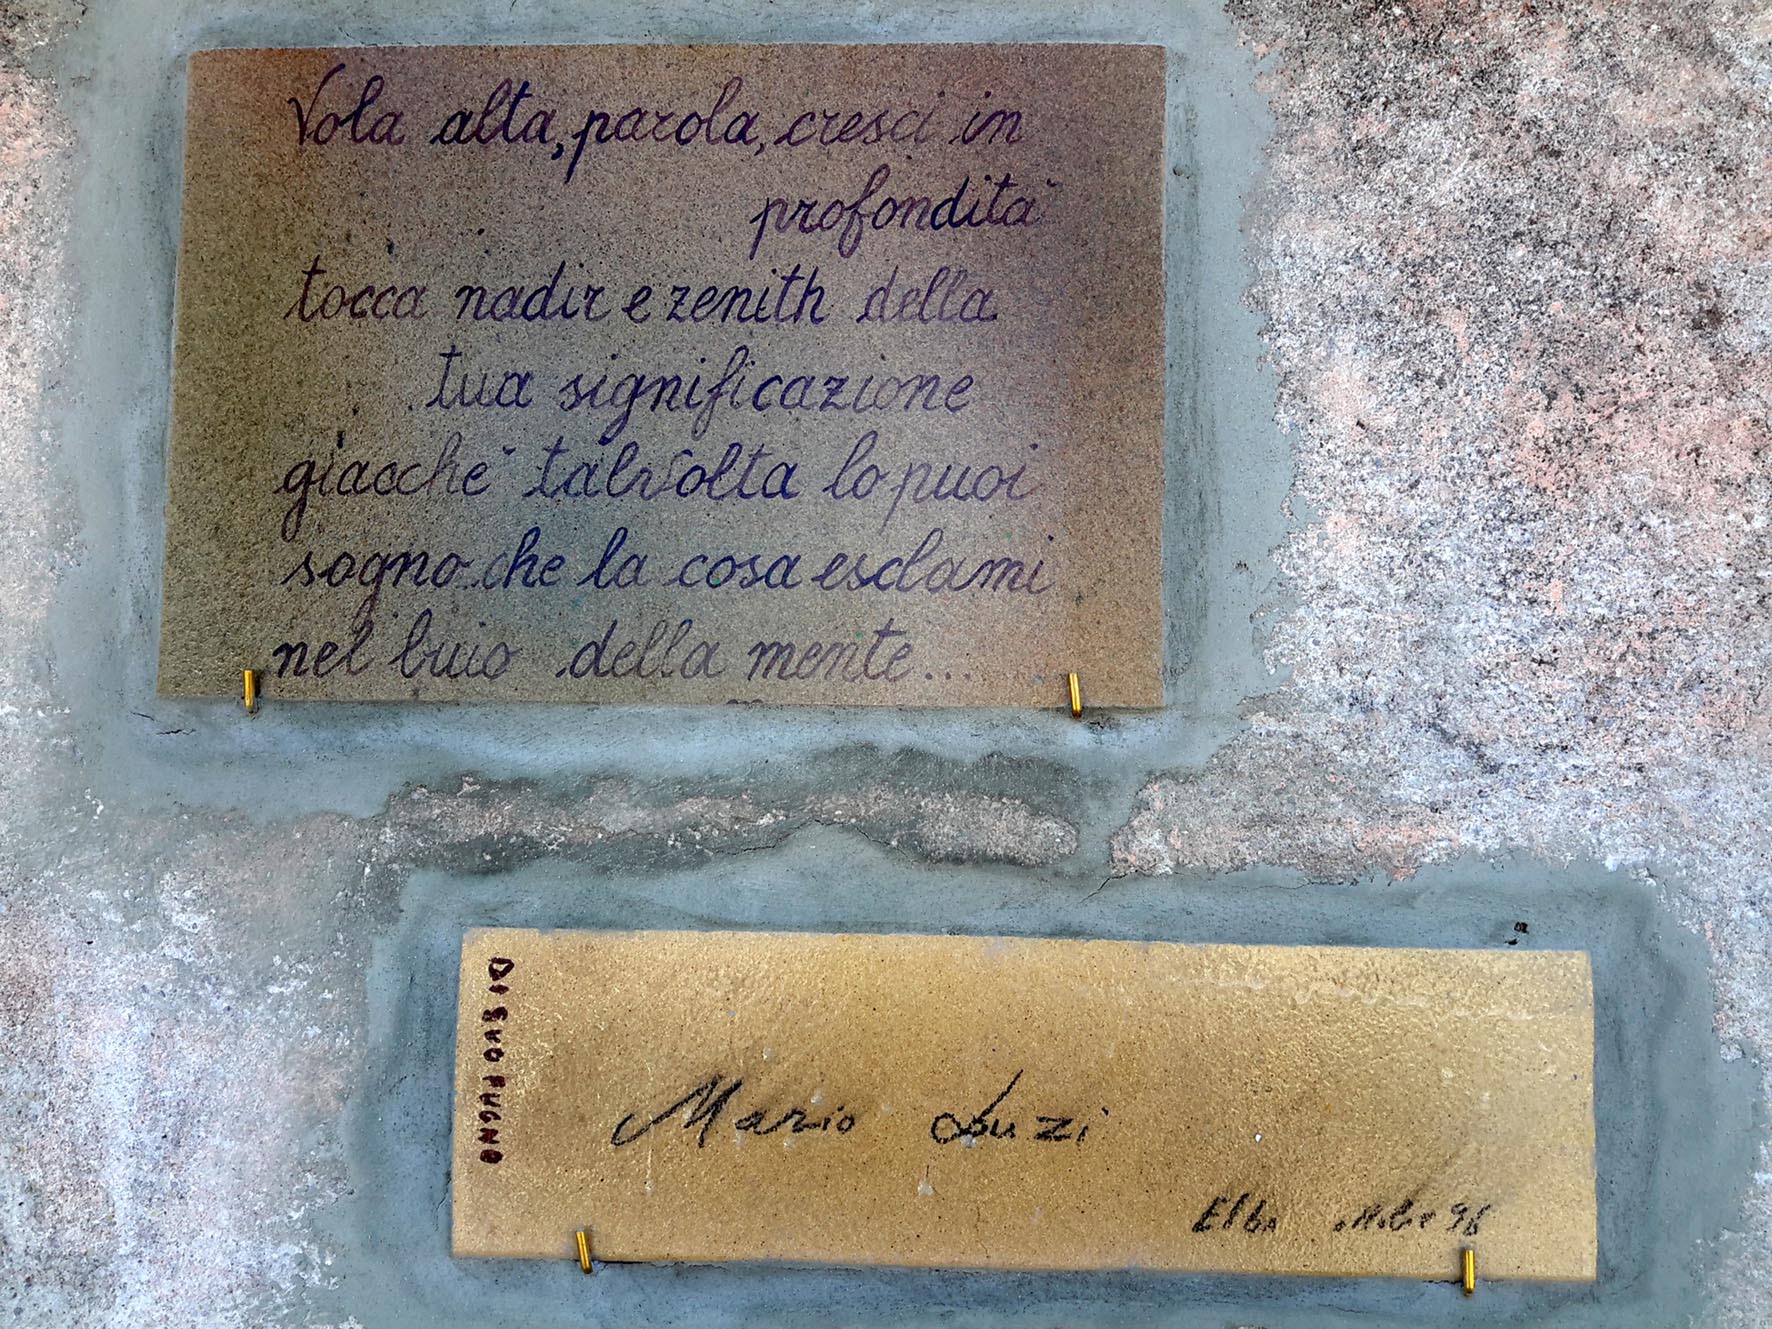 Vola alta, parola, cresci in
profondità
tocca nadir e zenith della
tua significazione
giacchè talvolta lo puoi
sogno che la cosa esclami
nel buio della mente...
DI SUO PUGNO
Mario Luzi
Elba ottobre 96